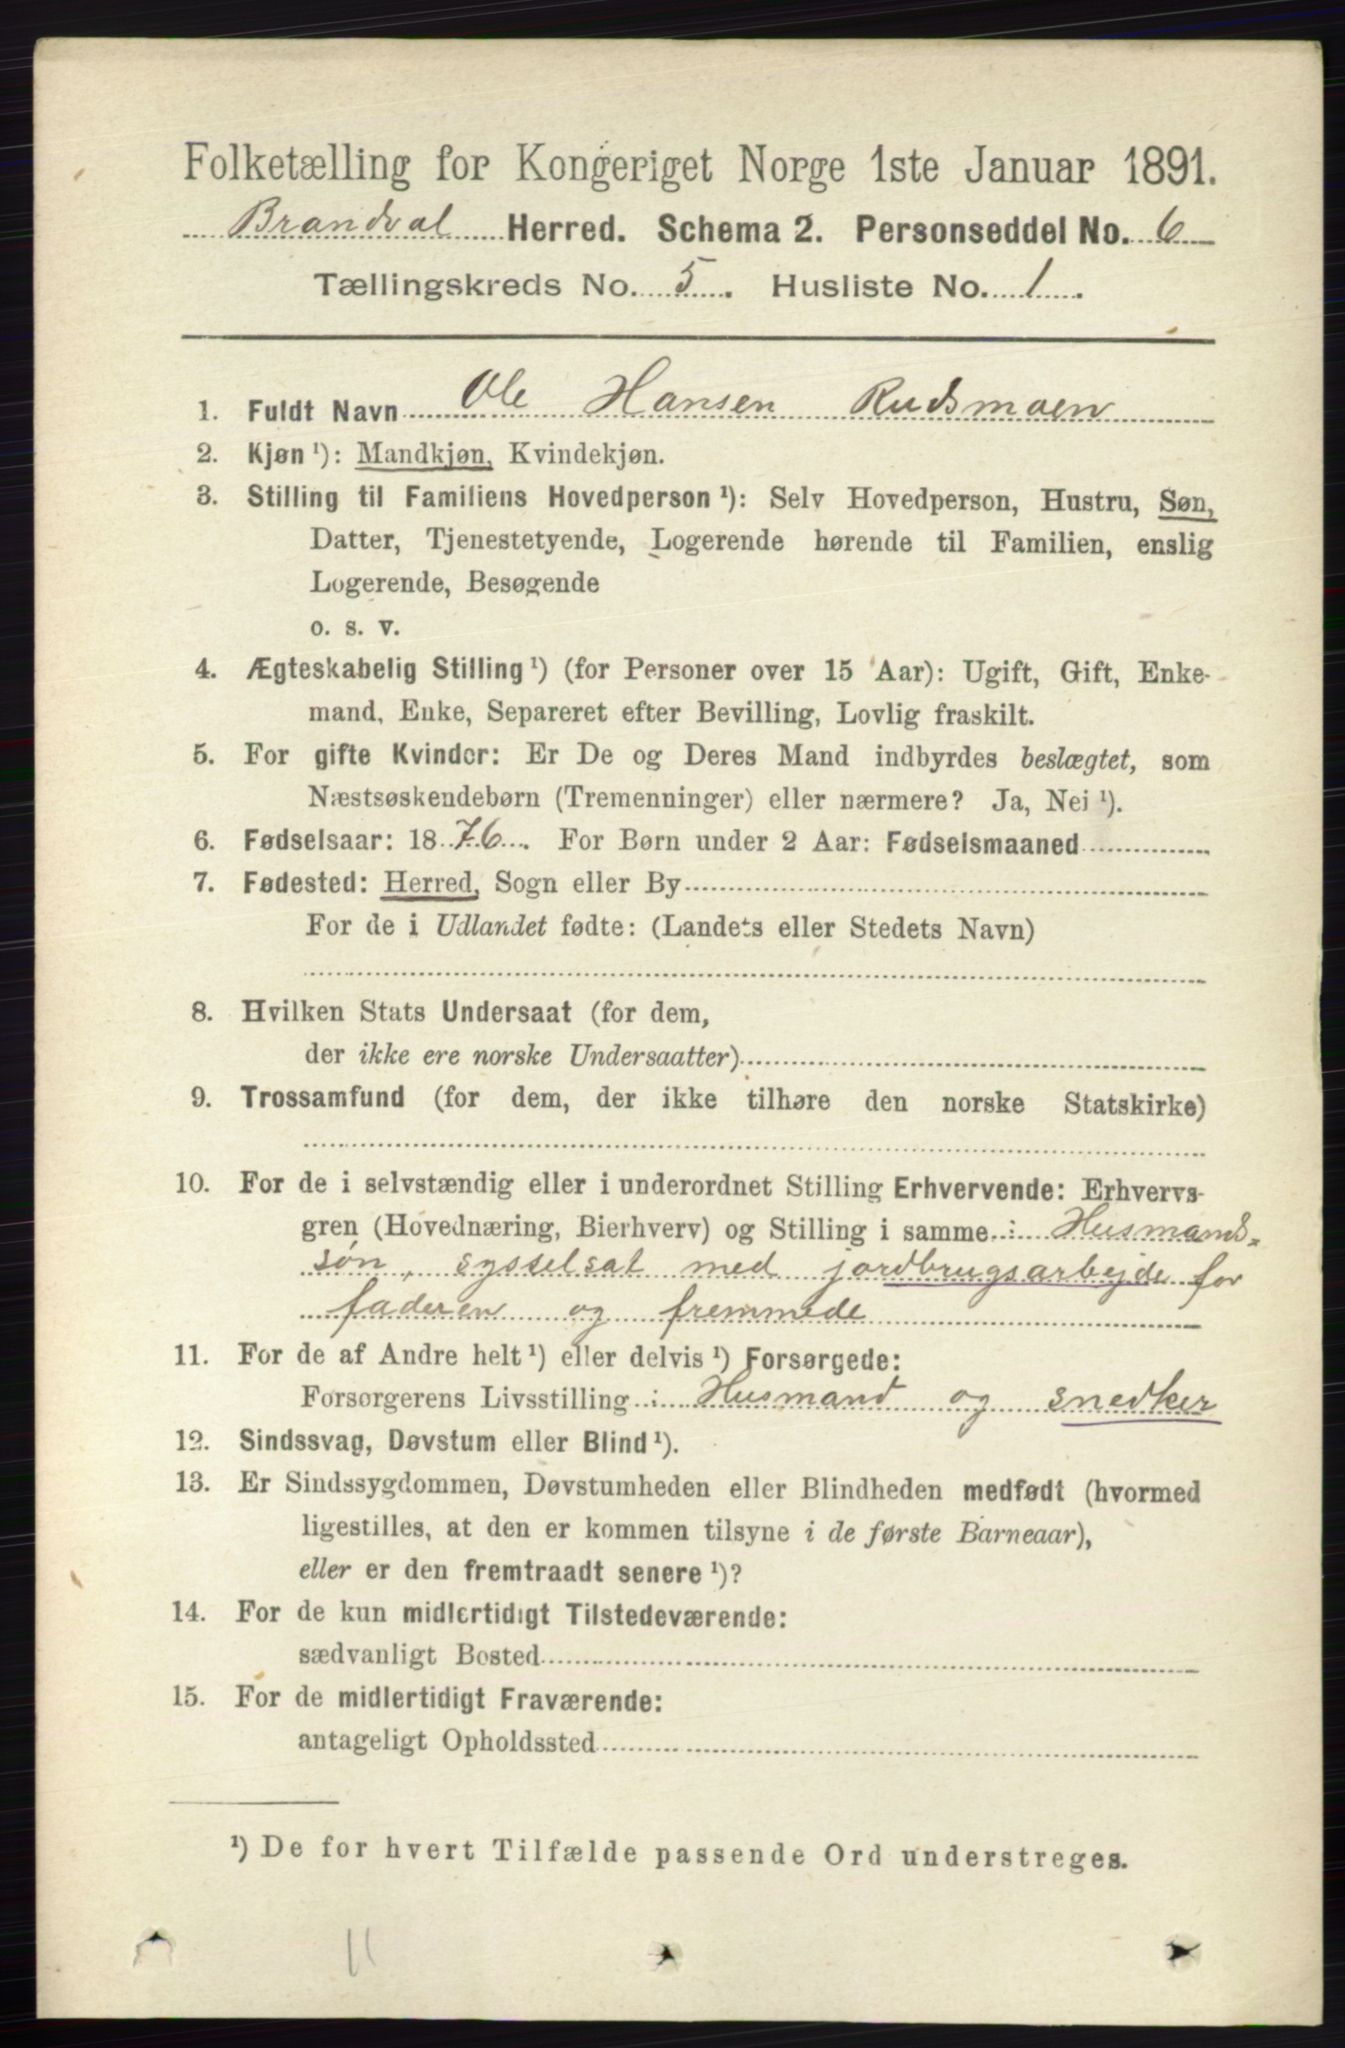 Folketælling for Kongeriget Norge 1ste Januar 1891.
Brandval Herred. Schema 2. Personseddel No. 6
Tællingskreds No. 5. Husliste No. 1.
1. Fuldt Navn Ole Hansen Rudsmoen
2. Kjøn ¹): Mandkjøn, Kvindekjøn.
3. Stilling til Familiens Hovedperson ¹): Selv Hovedperson, Hustru, Søn,
Datter, Tjenestetyende, Logerende hørende til Familien, enslig
Logerende, Besøgende
o. s. v.
4. Ægteskabelig Stilling ¹) (for Personer over 15 Aar): Ugift, Gift, Enke-
mand, Enke, Separeret efter Bevilling, Lovlig fraskilt.
5. For gifte Kvinder: Er De og Deres Mand indbyrdes beslægtet, som
Næstsøskendebørn (Tremenninger) eller nærmere? Ja, Nei ¹).
6. Fødselsaar: 1876. For Børn under 2 Aar: Fødselsmaaned
7. Fødested: Herred, Sogn eller By
For de i Udlandet fødte: (Landets eller Stedets Navn)
8. Hvilken Stats Undersaat (for dem,
der ikke ere norske Undersaatter)
9. Trossamfund (for dem, der ikke tilhøre den norske Statskirke)
10. For de i selvstændig eller i underordnet Stilling Erhvervende: Erhvervs-
gren (Hovednæring, Bierhverv) og Stilling i samme : Husmands-
søn, sysselsat med jordbrugsarbejde for
faderen og fremmede
11. For de af Andre helt ¹) eller delvis ¹) Forsørgede:
Forsørgerens Livsstilling : Husmand og snedker
12. Sindssvag, Døvstum eller Blind ¹).
13. Er Sindssygdommen, Døvstumheden eller Blindheden medfødt (hvormed
ligestilles, at den er kommen tilsyne i de første Barneaar),
eller er den fremtraadt senere ¹)?
14. For de kun midlertidigt Tilstedeværende:
sædvanligt Bosted
15. For de midlertidigt Fraværende:
antageligt Opholdssted
¹) De for hvert Tilfælde passende Ord understreges.
11